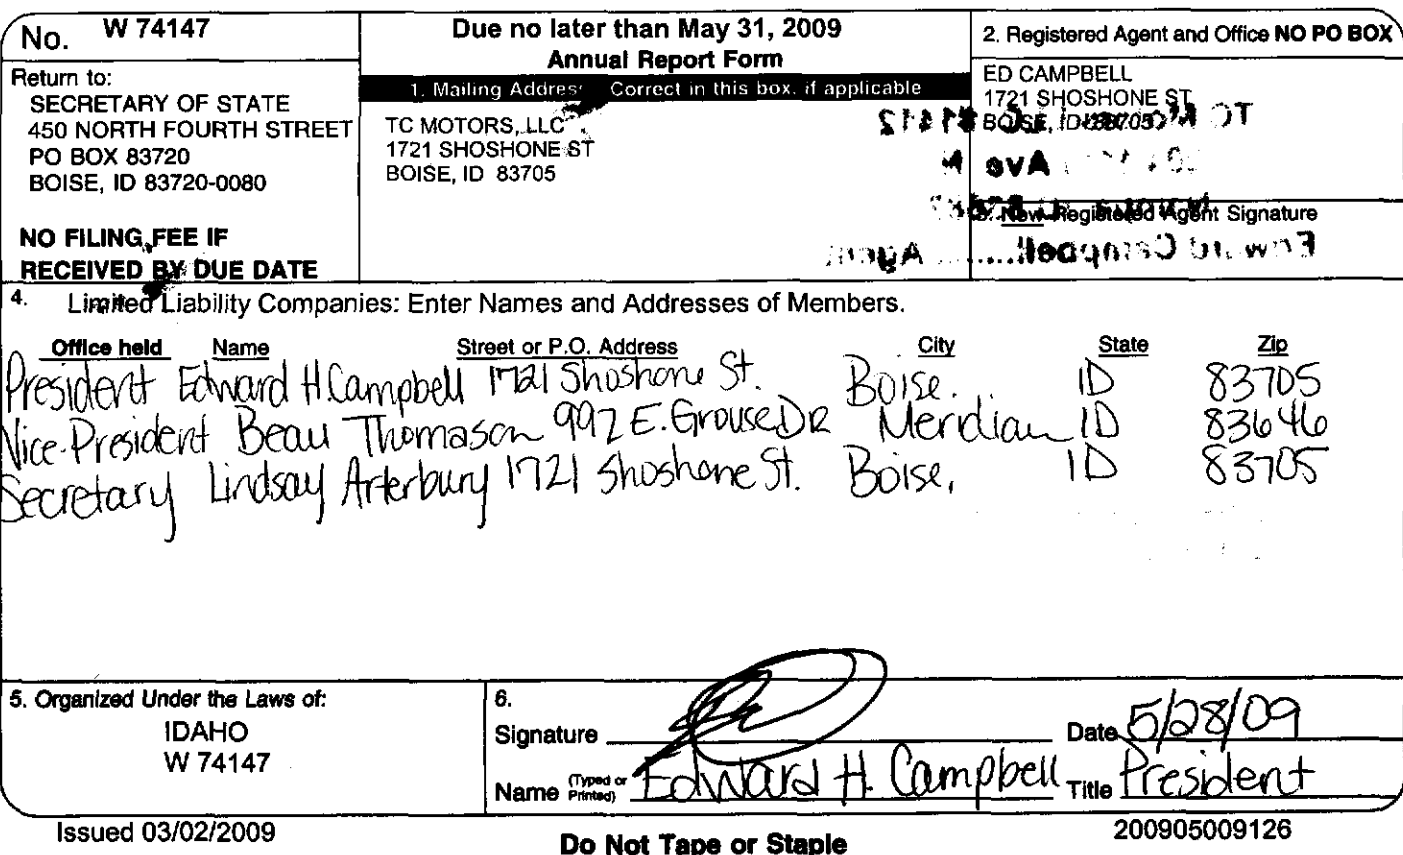 No. W 74147
Due no later than May 31, 2009
Annual Report Form
Return to:
SECRETARY OF STATE
450 NORTH FOURTH STREET
PO BOX 83720
BOISE, ID 83720-0080
NO FILING FEE IF
RECEIVED BY DUE DATE
1. Mailing Address Correct in this box. if applicable
TC MOTORS, LLC
1721 SHOSHONE ST
BOISE, ID 83705
2. Registered Agent and Office NO PO BOX
ED CAMPBELL
1721 SHOSHONE ST
BOISE, ID 83705
3. New Registered Agent Signature
Edward Campbell........ Agent
4. Limited Liability Companies: Enter Names and Addresses of Members.
Office held Name Street or P.O. Address City State Zip
President Edward H Campbell 1721 Shoshone St. Boise. ID 83705
Vice-President Beau Thomason 992 E. Grouse DR Meridian ID 83646
Secretary Lindsay Arterbury 1721 Shoshone St. Boise, ID 83705
5. Organized Under the Laws of:
IDAHO
W 74147
6.
Signature Date 5/28/09
Name (Typed or Printed) Edward H. Campbell Title President
Issued 03/02/2009
Do Not Tape or Staple
200905009126